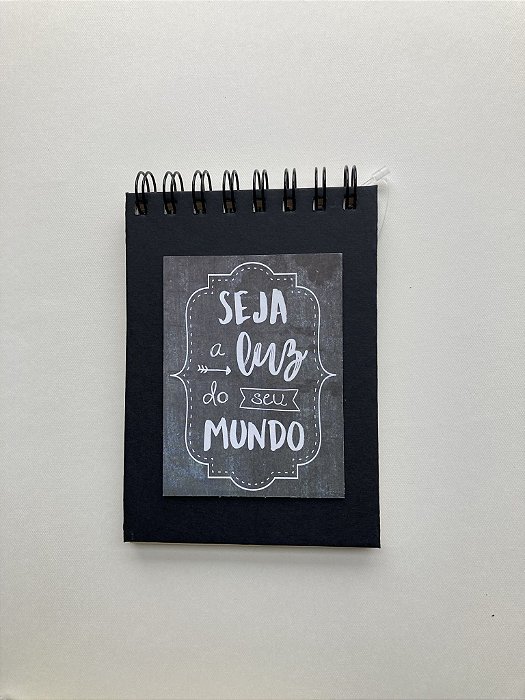 SEJA
a luz
do seu
MUNDO